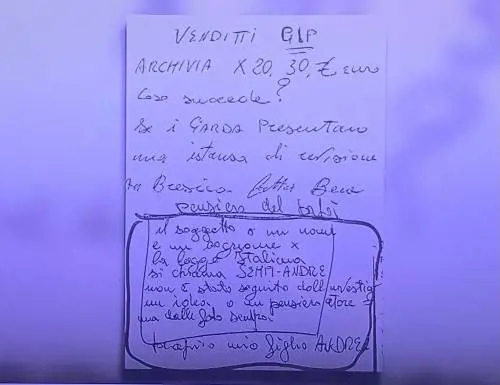 VENDITTI GIP
ARCHIVIA X 20. 30. € euro
Cosa succede?
Se i GARDA Presentano
una istanza di revisione
Brescia fatta Bene
pensiero del
il soggetto o un nome
e un cognome x
la legge Italiana
si chiama SEMPI-ANDRE
non è stato seguito dall'investig
un idea. o un pensiero atore =
ma dalle foto sempi.
proprio mio figlio ANDREA